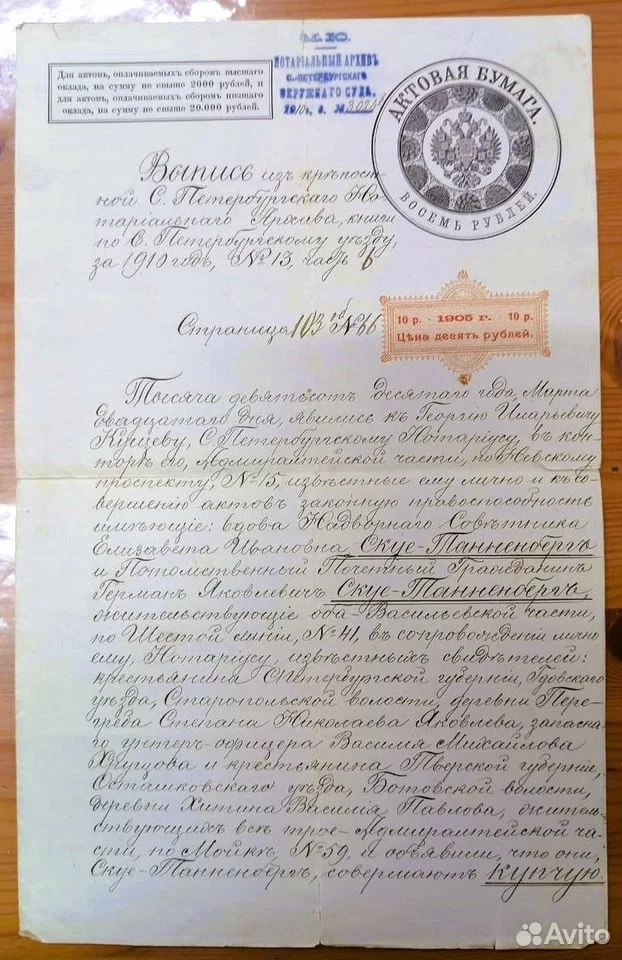 М.Ю.
НОТАРІАЛЬНЫЙ АРХИВЪ
С.-ПЕТЕРБУРГСКАГО
ОКРУЖНАГО СУДА.
Для актовъ, оплачиваемыхъ сборомъ высшаго
оклада, на сумму не свыше 2000 рублей, и
для актовъ, оплачиваемыхъ сборомъ низшаго
оклада, на сумму не свыше 20.000 рублей.
АКТОВАЯ БУМАГА.
ВОСЕМЬ РУБЛЕЙ.
Выпись изъ крѣпост-
ной С. Петербургскаго Но-
таріальнаго Архива, книги
по С. Петербургскому уѣзду,
за 1910 годъ, № 13, часть 6
Страница 103 об № 66
10 р. · 1905 г. · 10 р.
Цѣна десять рублей.
Тысяча девятьсотъ десятаго года, Марта
Двадцатаго дня, явились къ Георгію Иларьевичу
С. Петербургскому Нотаріусу, въ кон-
торѣ его, Адмиралтейской части, по Невскому
проспекту, № 15, извѣстные ему лично и къ со-
вершенію актовъ законную правоспособность
имѣющіе: вдова Надворнаго Совѣтника
Елизавета Ивановна Скуе-Танненбергъ
и Потомственный Почетный Гражданинъ
Германъ Яковлевичъ Скуе-Танненбергъ,
жительствующіе оба-Васильевской части,
по Шестой линіи, № 41, въ сопровожденіи лично
ему, Нотаріусу, извѣстныхъ свидѣтелей:
крестьянина С.Петербургской губерніи, Гдовскаго
уѣзда, Старопольской волости, деревни Пере-
греба Степана Николаева Яковлева, запасна-
го унтеръ-офицера Василія Михайлова
и крестьянина Тверской губерніи,
Осташковскаго уѣзда, Ботовской волости,
деревни Хитина Василія Павлова, житель-
ствующихъ всѣ трое-Адмиралтейской ча-
сти, по Мойкѣ, № 59, и объявили, что они,
Скуе-Танненбергъ, совершаютъ купчую
Avito